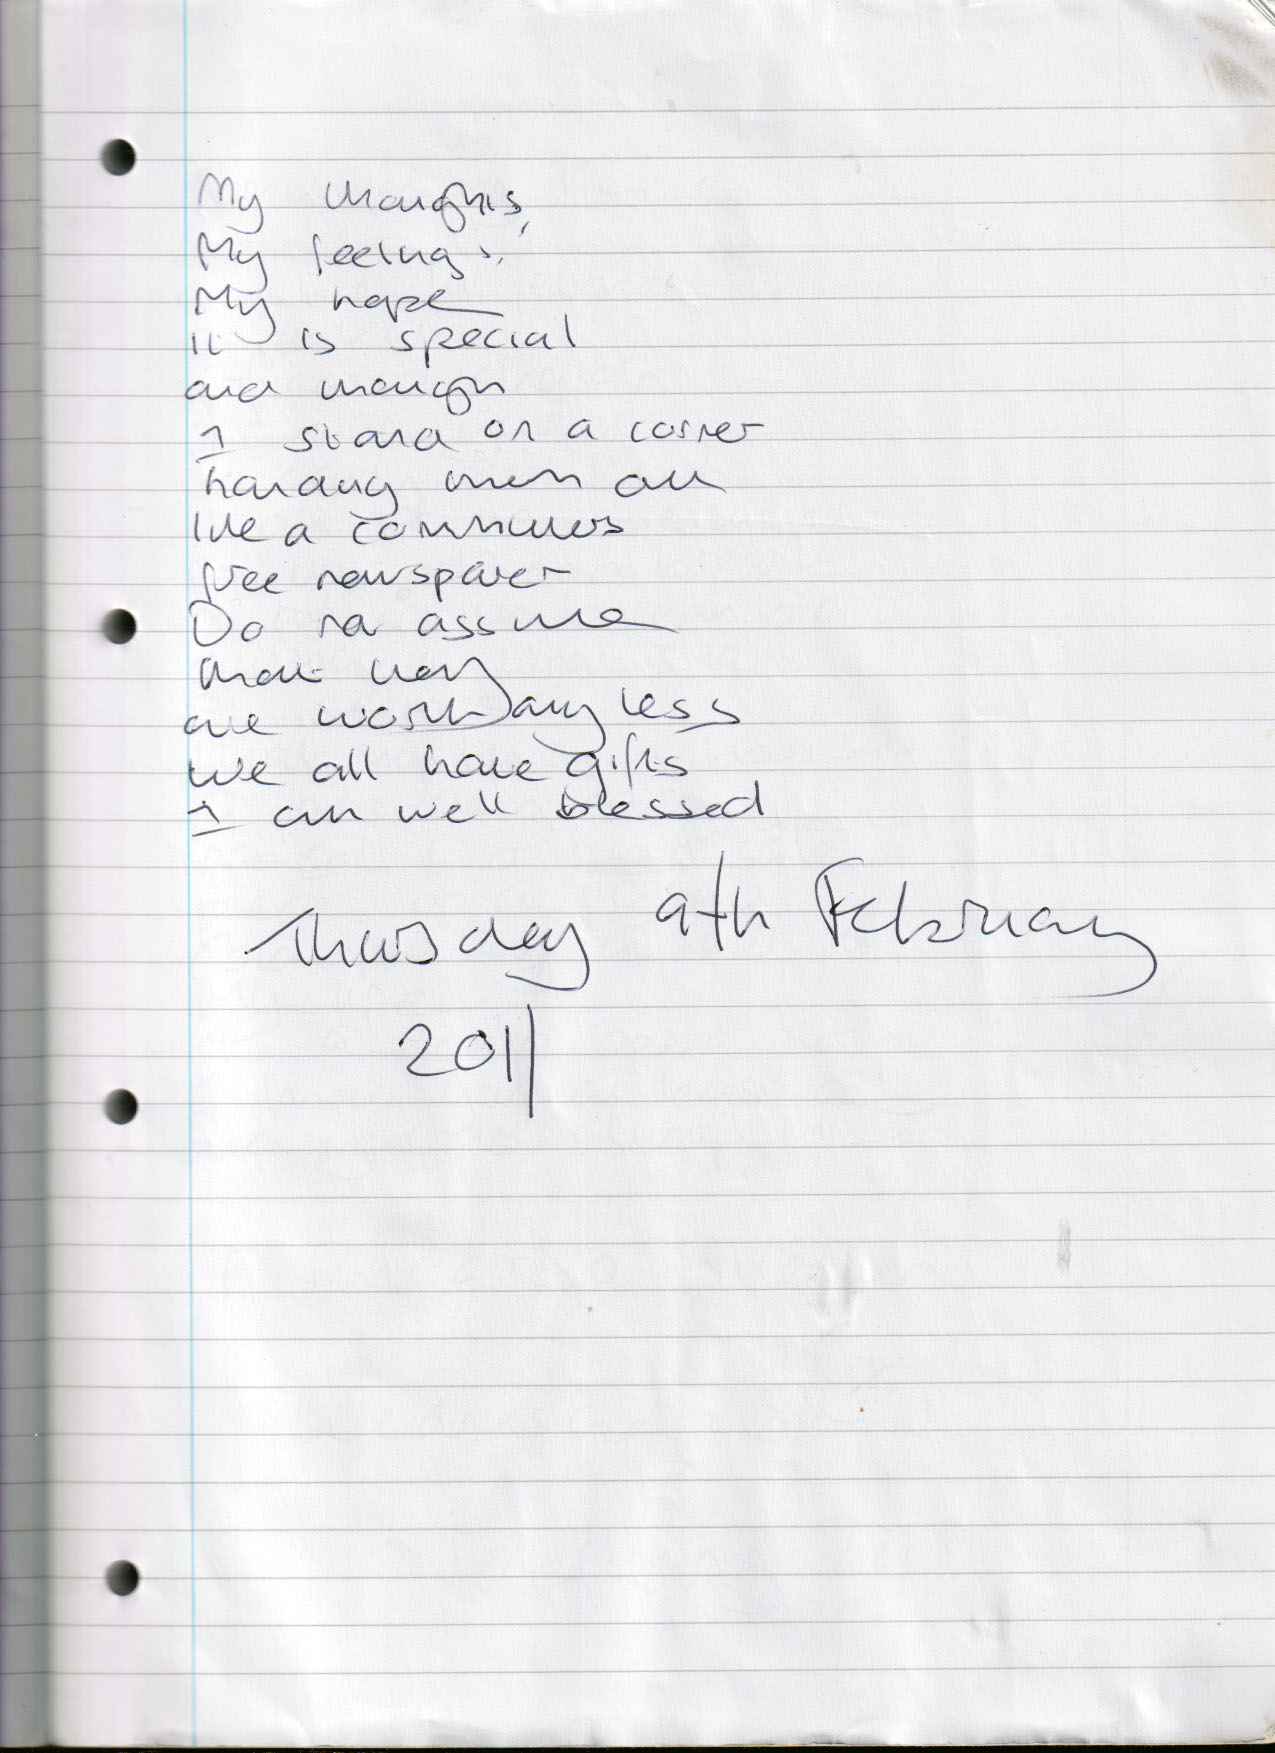 My thoughts,
My feelings,
My hope
it is special
and though
I stand on a corner
handing them out
like a commuters
free newspaper
Do not assume
that they
are worth any less
we all have gifts
I am well blessed
Thursday 9th February
2011